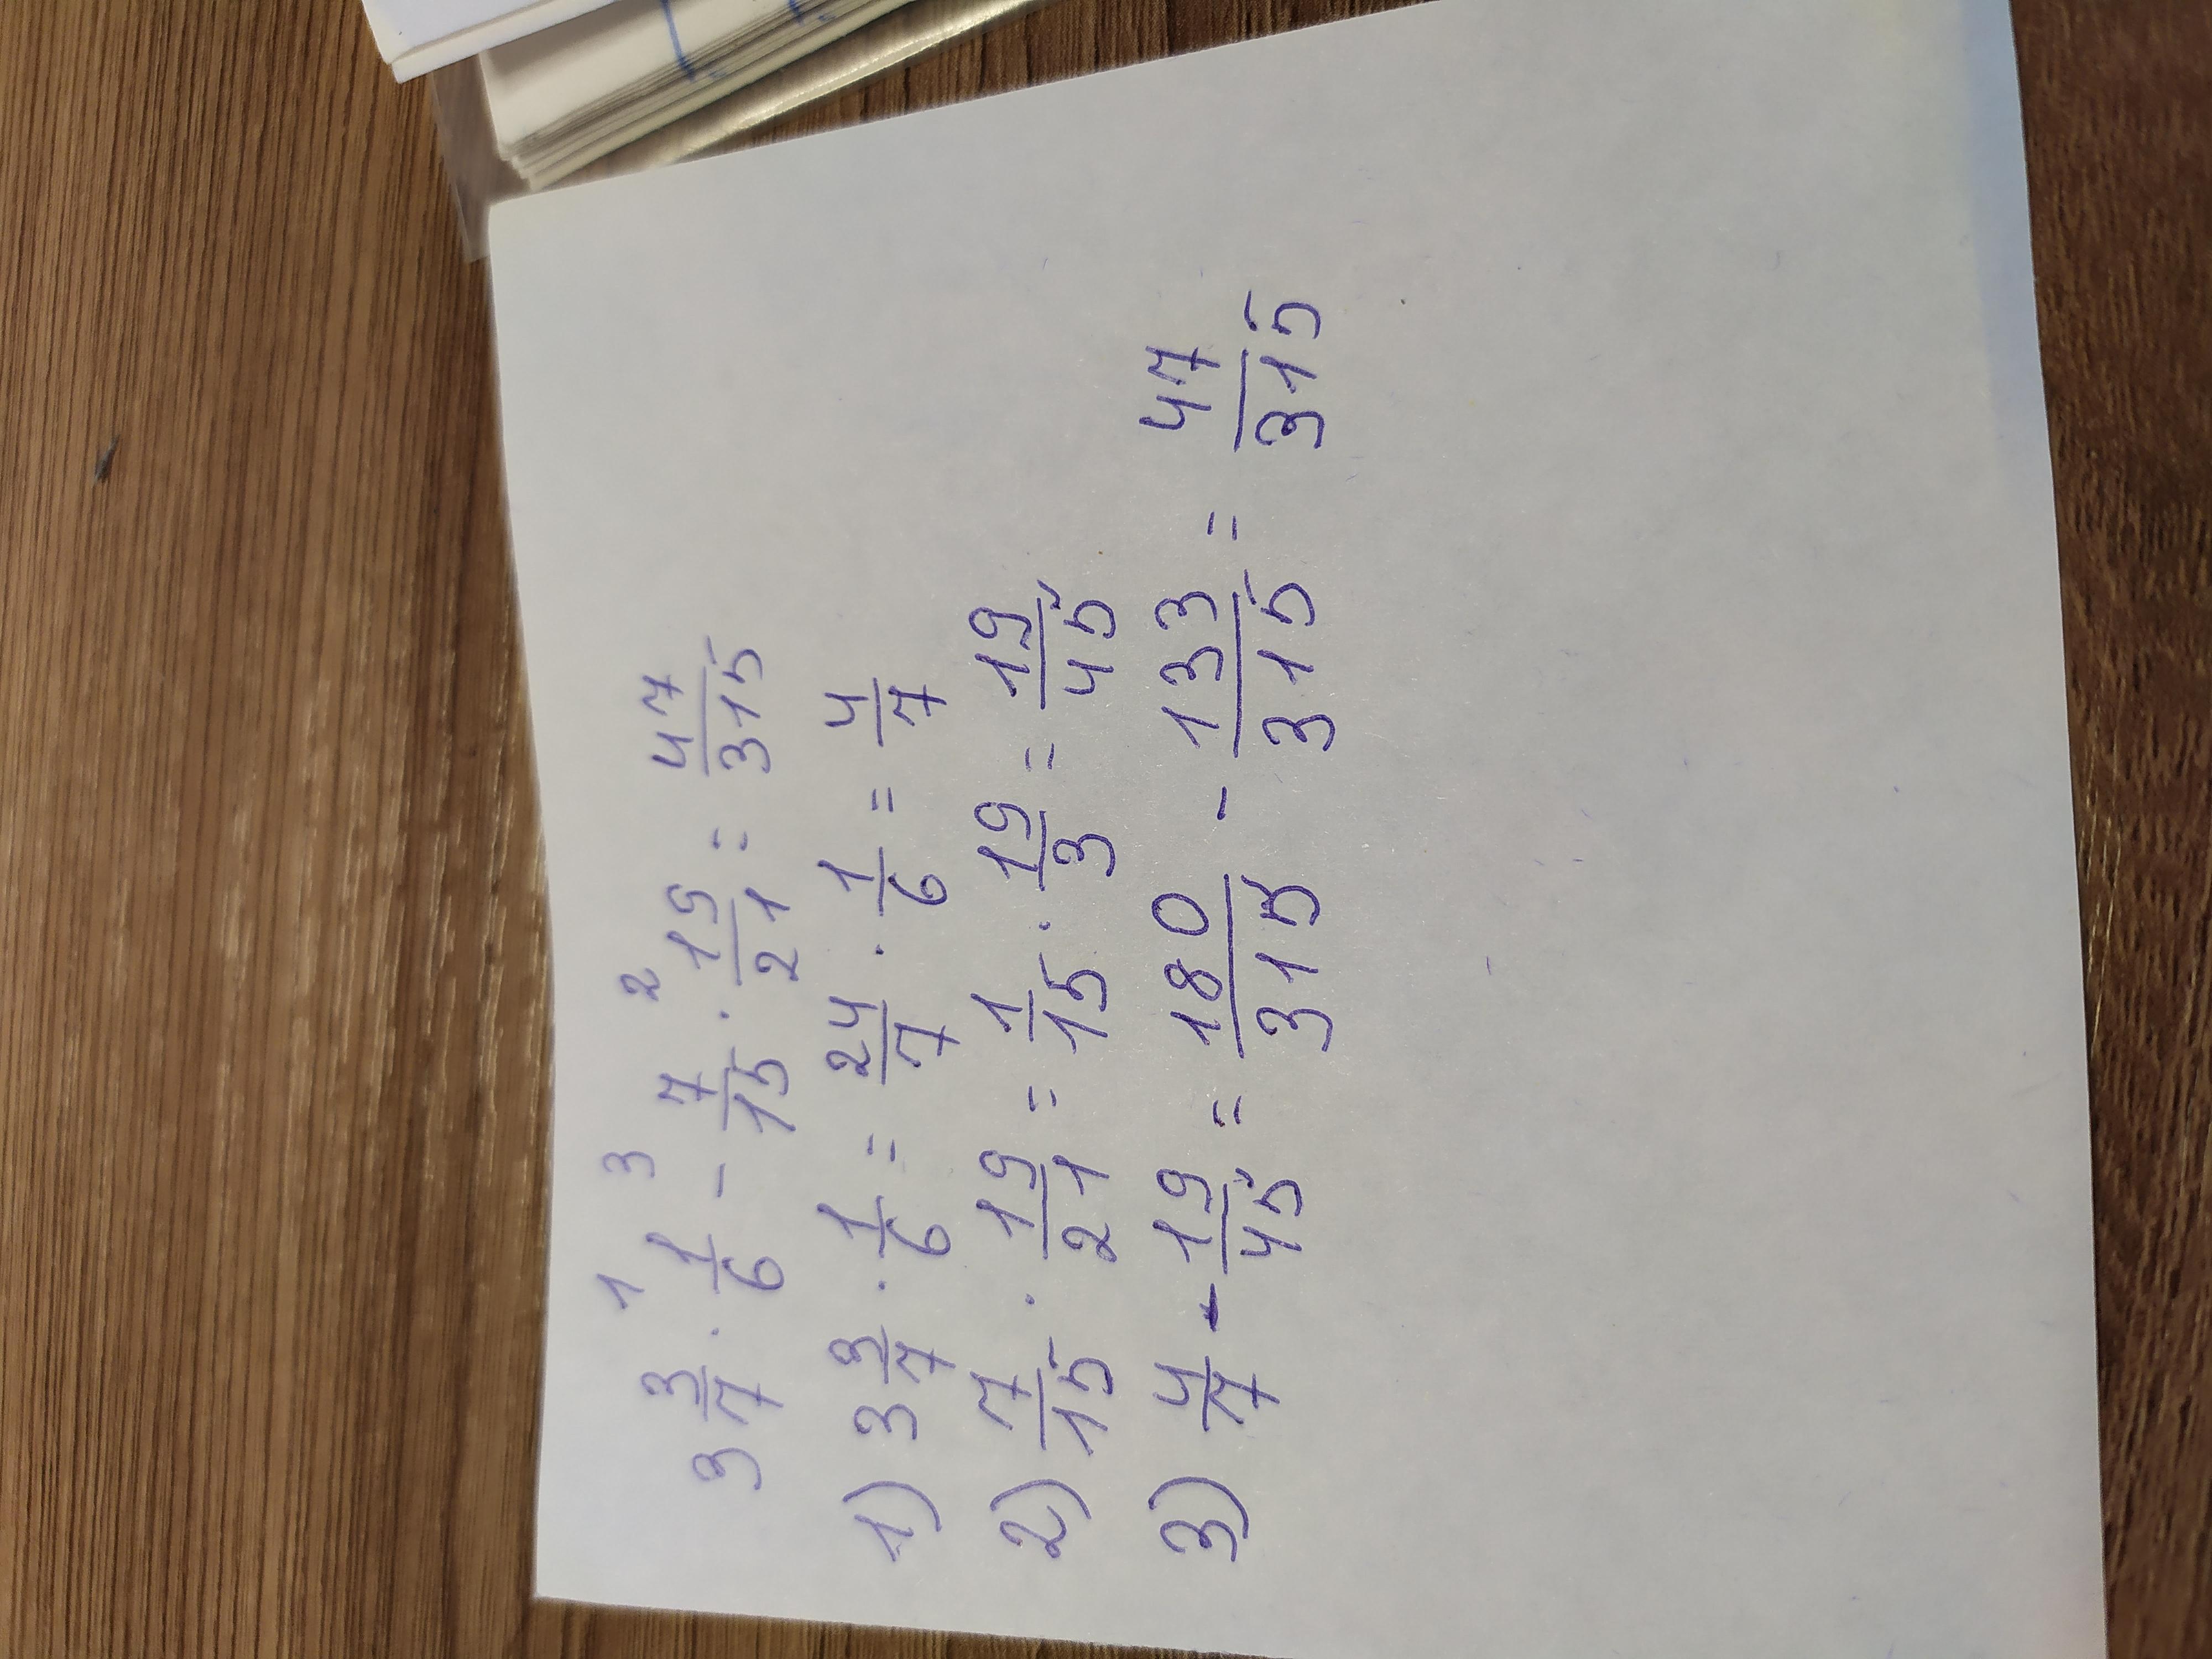 1 3 2
3 3/7 · 1/6 - 7/15 · 19/21 = 47/315
1) 3 3/7 · 1/6 = 24/7 · 1/6 = 4/7
2) 7/15 · 19/21 = 1/15 · 19/3 = 19/45
3) 4/7 - 19/45 = 180/315 - 133/315 = 47/315